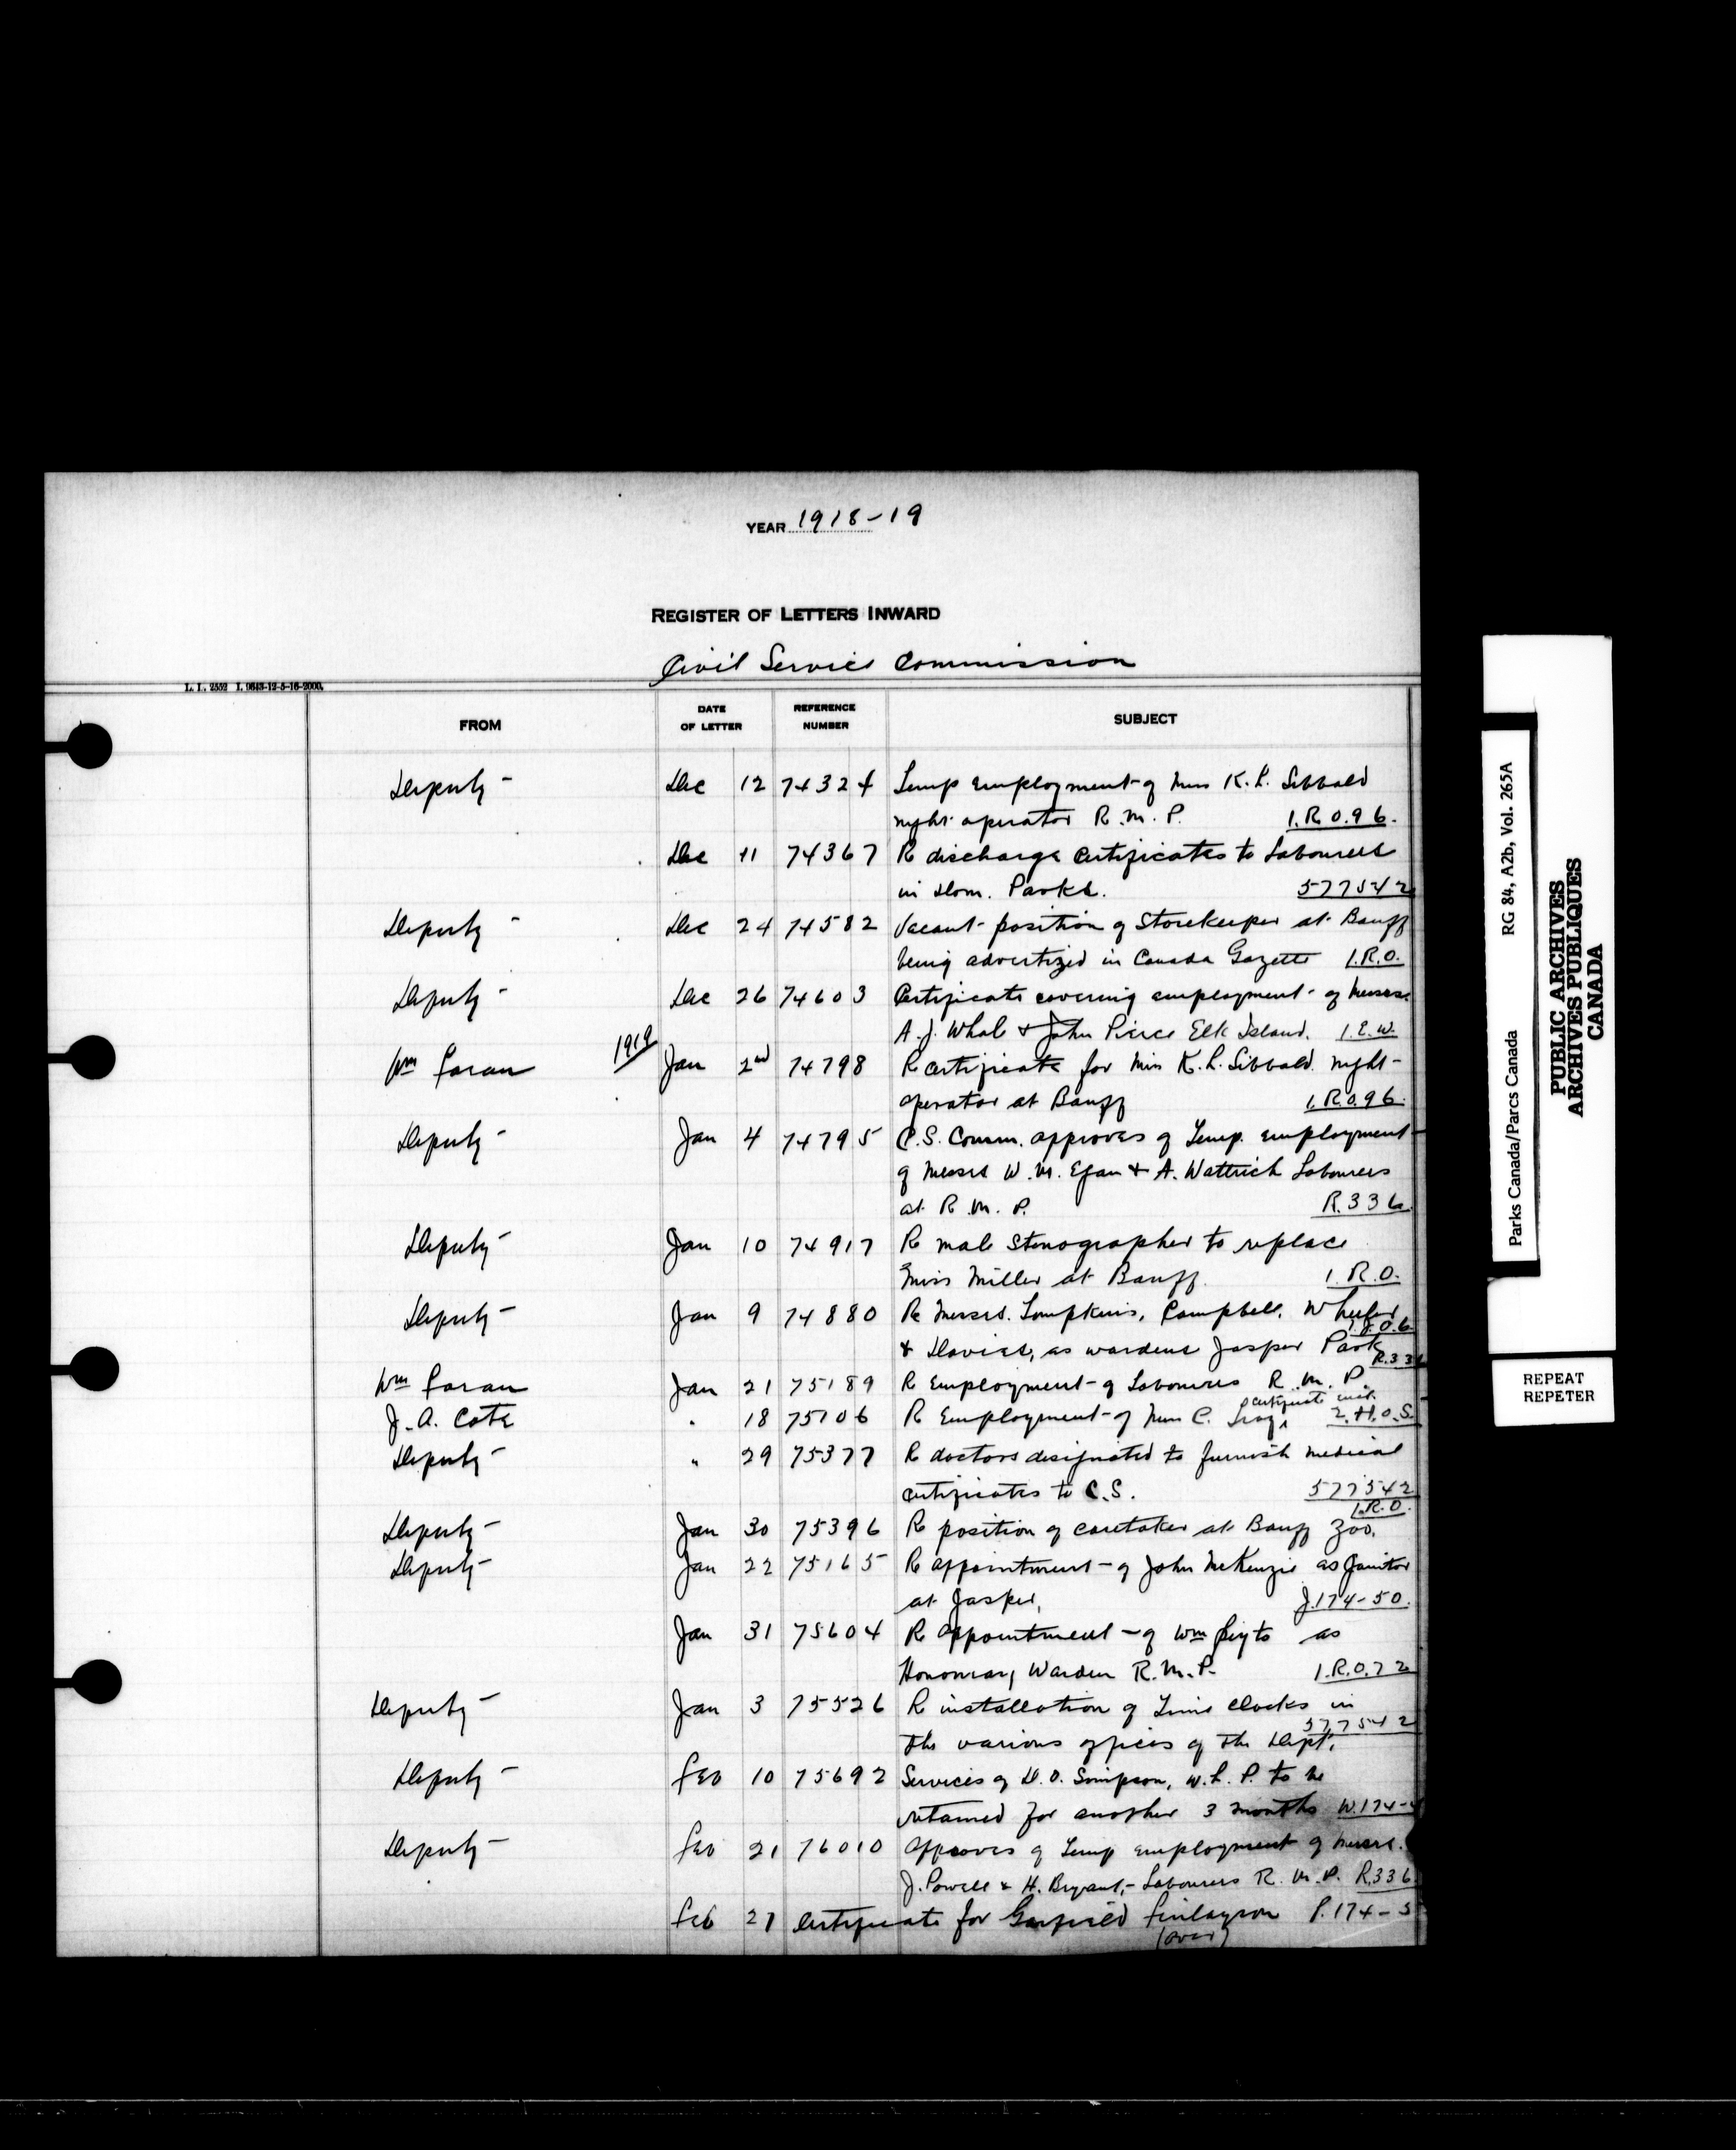 YEAR 1918-19
REGISTER OF LETTERS INWARD
Civil Service Commission
L. I. 2552 I. 9643-12-5-16-2000.
FROM DATE OF LETTER REFERENCE NUMBER SUBJECT
Deputy - Dec 12 74324 Temp employment of Miss K. L. Sibbald
night operator R.M.P. 1.R.0.96.
Dec 11 74367 R discharge certificates to Labourers
in Dom. Parks. 577542
Deputy - Dec 24 74582 Vacant position of Storekeeper at Banff
being advertized in Canada Gazette 1.R.O.
Deputy - Dec 26 74603 Certificate covering employment of Messrs
A. J. Whale & John Pierce Elk Island. 1.E.W.
Wm Foran 1919 Jan 2nd 74798 R certificate for Miss K. L. Sibbald night
operator at Banff 1.R.0.96.
Deputy - Jan 4 74795 C.S. Comm. approves of Temp. employment
of Messrs W. M. Egan & A. Wattrich Labourers
at R.M.P. R.336
Deputy - Jan 10 74917 R male Stenographer to replace
Miss Miller at Banff. 1.R.O.
Deputy - Jan 9 74880 R Messrs. Tompkins, Campbell, Wheeler
& Davies, as wardens Jasper Park
Wm Foran Jan 21 75189 R Employment of Labourers R.M.P. R.336
J. A. Cote " 18 75106 R Employment of Miss C. certificate 2.H.O.S.
Deputy - " 29 75377 R doctors designated to furnish medical
certificates to C.S. 577542
Deputy - Jan 30 75396 R position of caretaker at Banff Zoo. 1.R.O.
Deputy - Jan 22 75165 R appointment of John McKenzie as Janitor
at Jasper, J.174-50.
Jan 31 75604 R appointment of Wm Peyto as
Honourary Warden R.M.P. 1.R.0.72
Deputy - Jan 3 75526 R installation of Time Clocks in
the various offices of the Dept. 577542
Deputy - Feb 10 75692 Services of D. O. Simpson, W.L.P. to be
retained for another 3 months W.174-4
Deputy - Feb 21 76010 Approves of Temp employment of Messrs.
J. Powell & H. Bryant, - Labourers R.M.P. R.336
Feb 27 Certificate for Garfield Finlayson P.174-5
(over)
Parks Canada/Parcs Canada RG 84, A2b, Vol. 265A
PUBLIC ARCHIVES
ARCHIVES PUBLIQUES
CANADA
REPEAT
REPETER